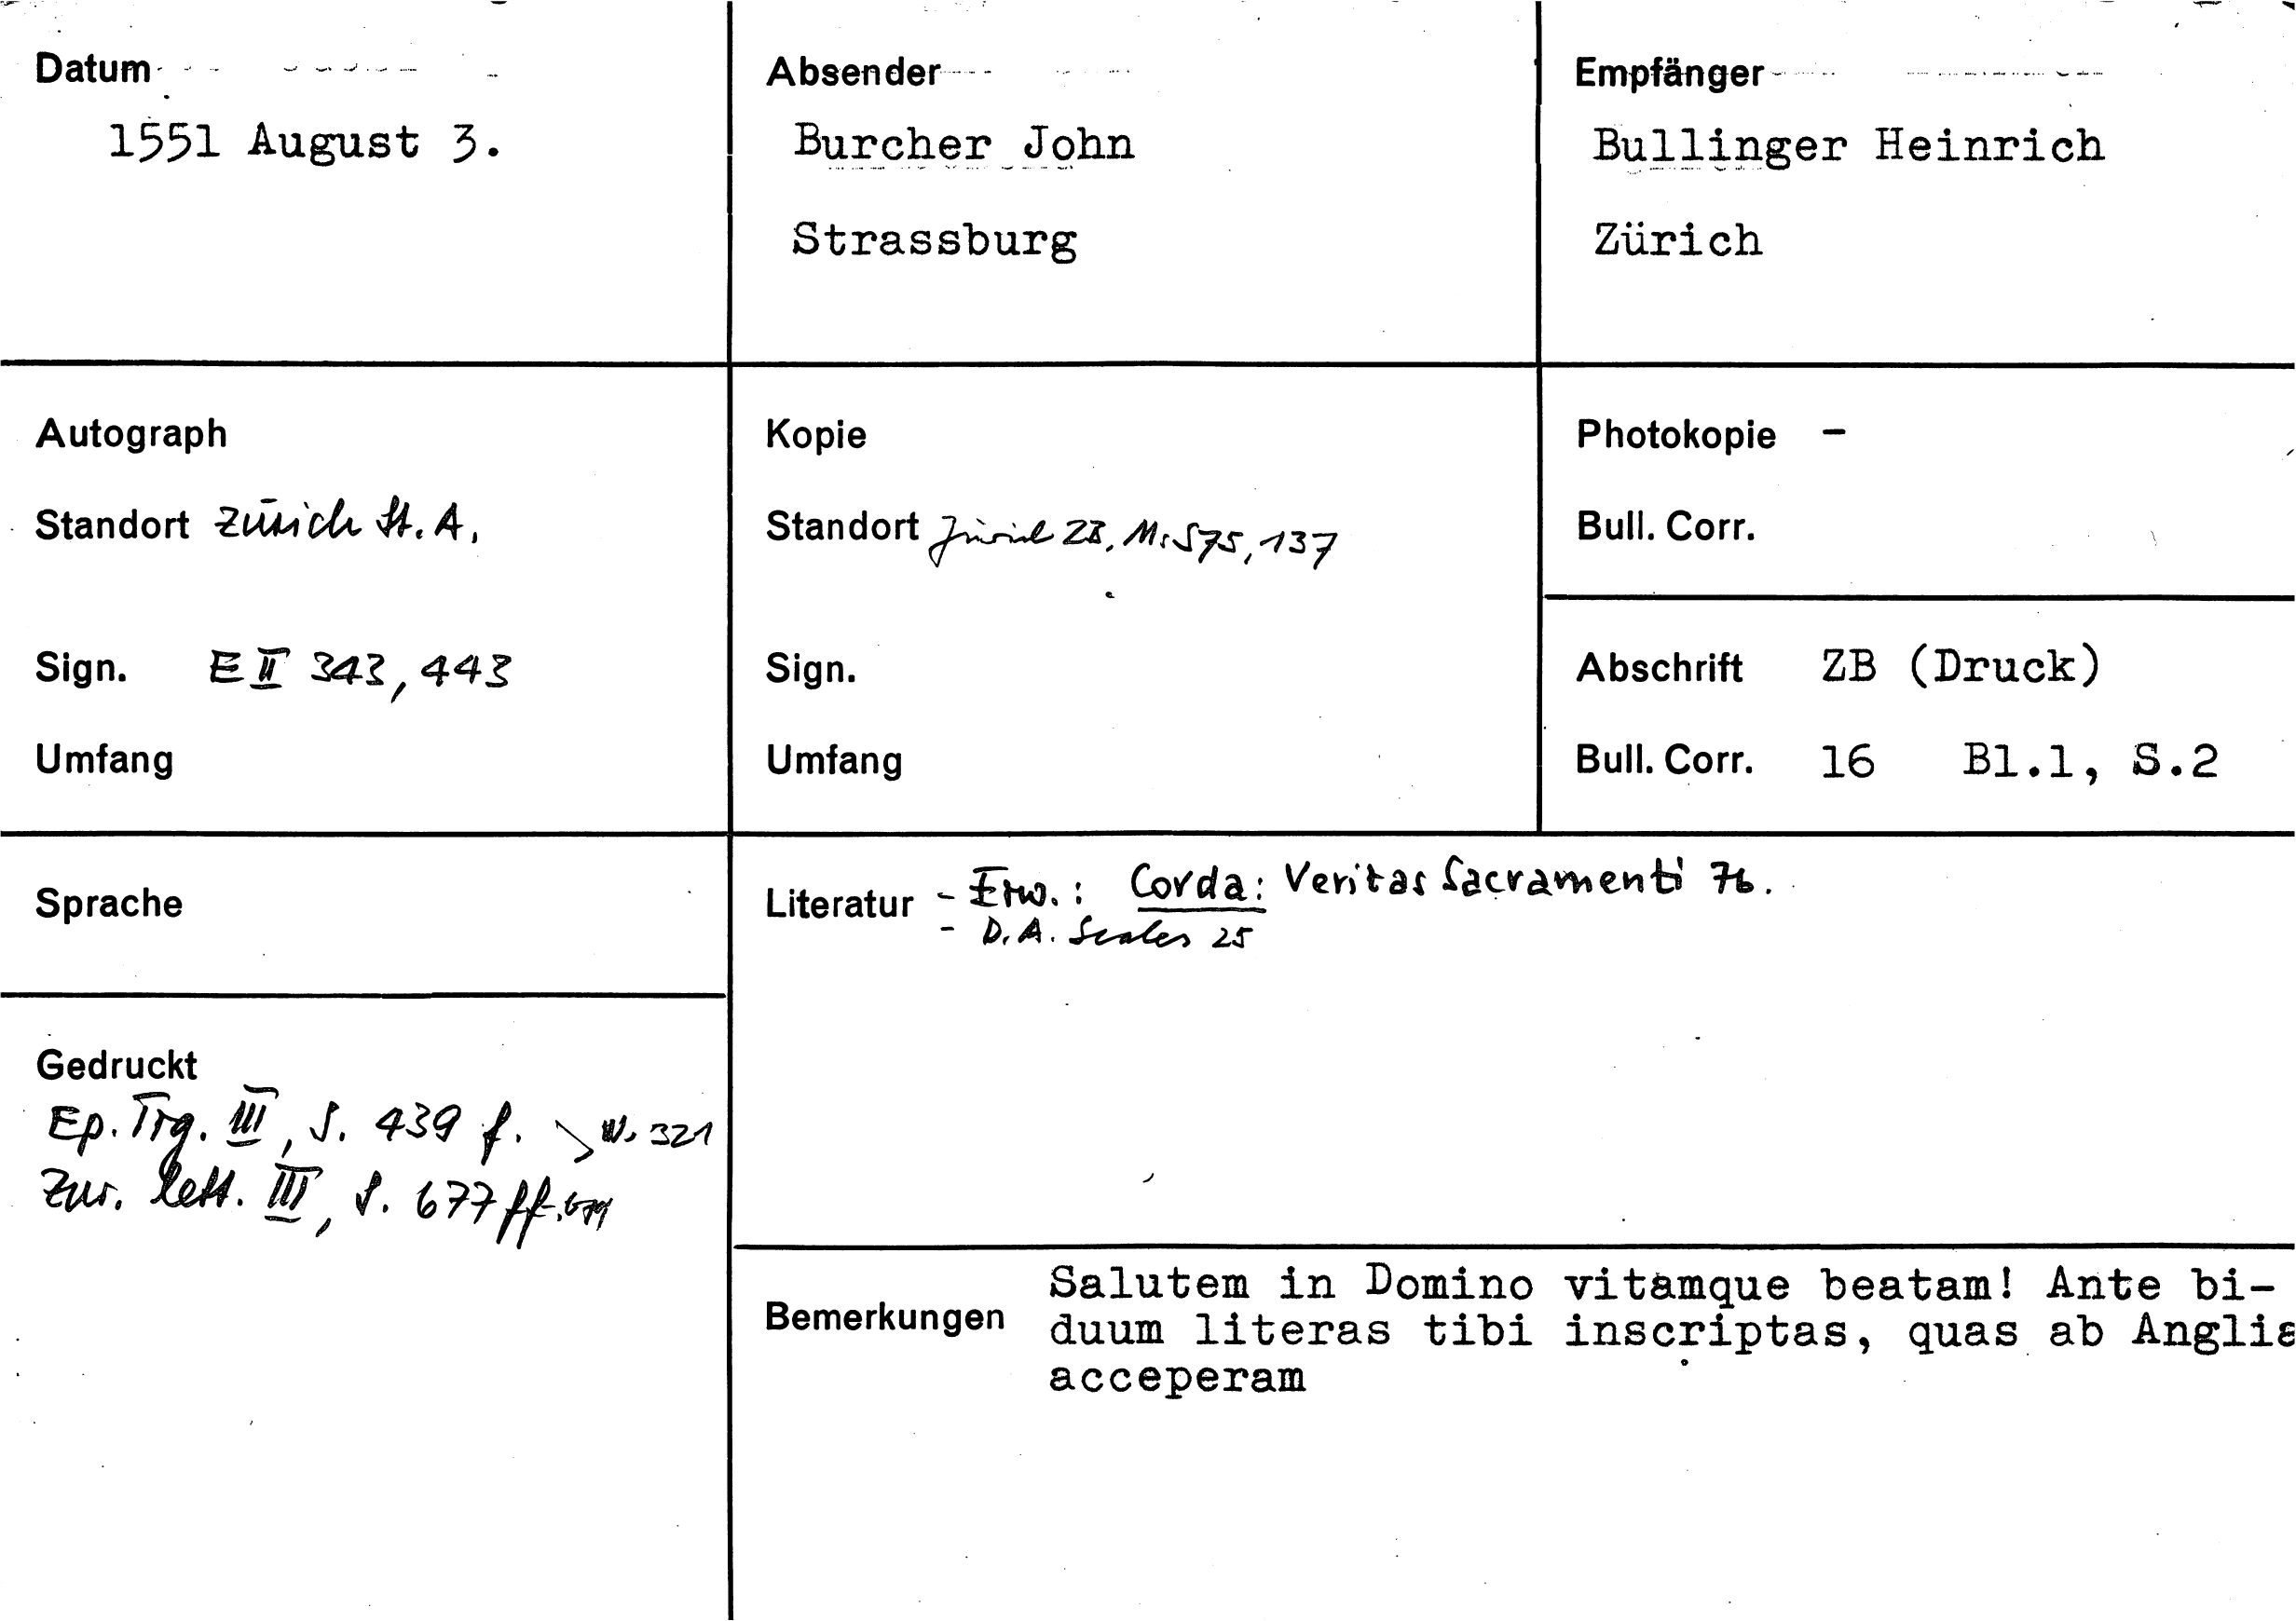 Datum
1551 August 3.
Absender
Burcher John
Strassburg
Empfänger
Bullinger Heinrich
Zürich
Autograph
Standort Zürich St. A.
Sign. E II 343, 443
Umfang
Kopie
Standort Zürich ZB, Ms S 75, 137
Sign.
Umfang
Photokopie -
Bull. Corr.
Abschrift ZB (Druck)
Bull. Corr. 16 Bl.1, S.2
Sprache
Literatur - Erw.: Corda: Veritas Sacramenti 76.
- D. A. Scales 25
Gedruckt
Ep. Tig. III, S. 439 f. N. 321
Zur. Lett. III, S. 677 ff.
Bemerkungen
Salutem in Domino vitamque beatam! Ante bi-
duum literas tibi inscriptas, quas ab Anglia
acceperam